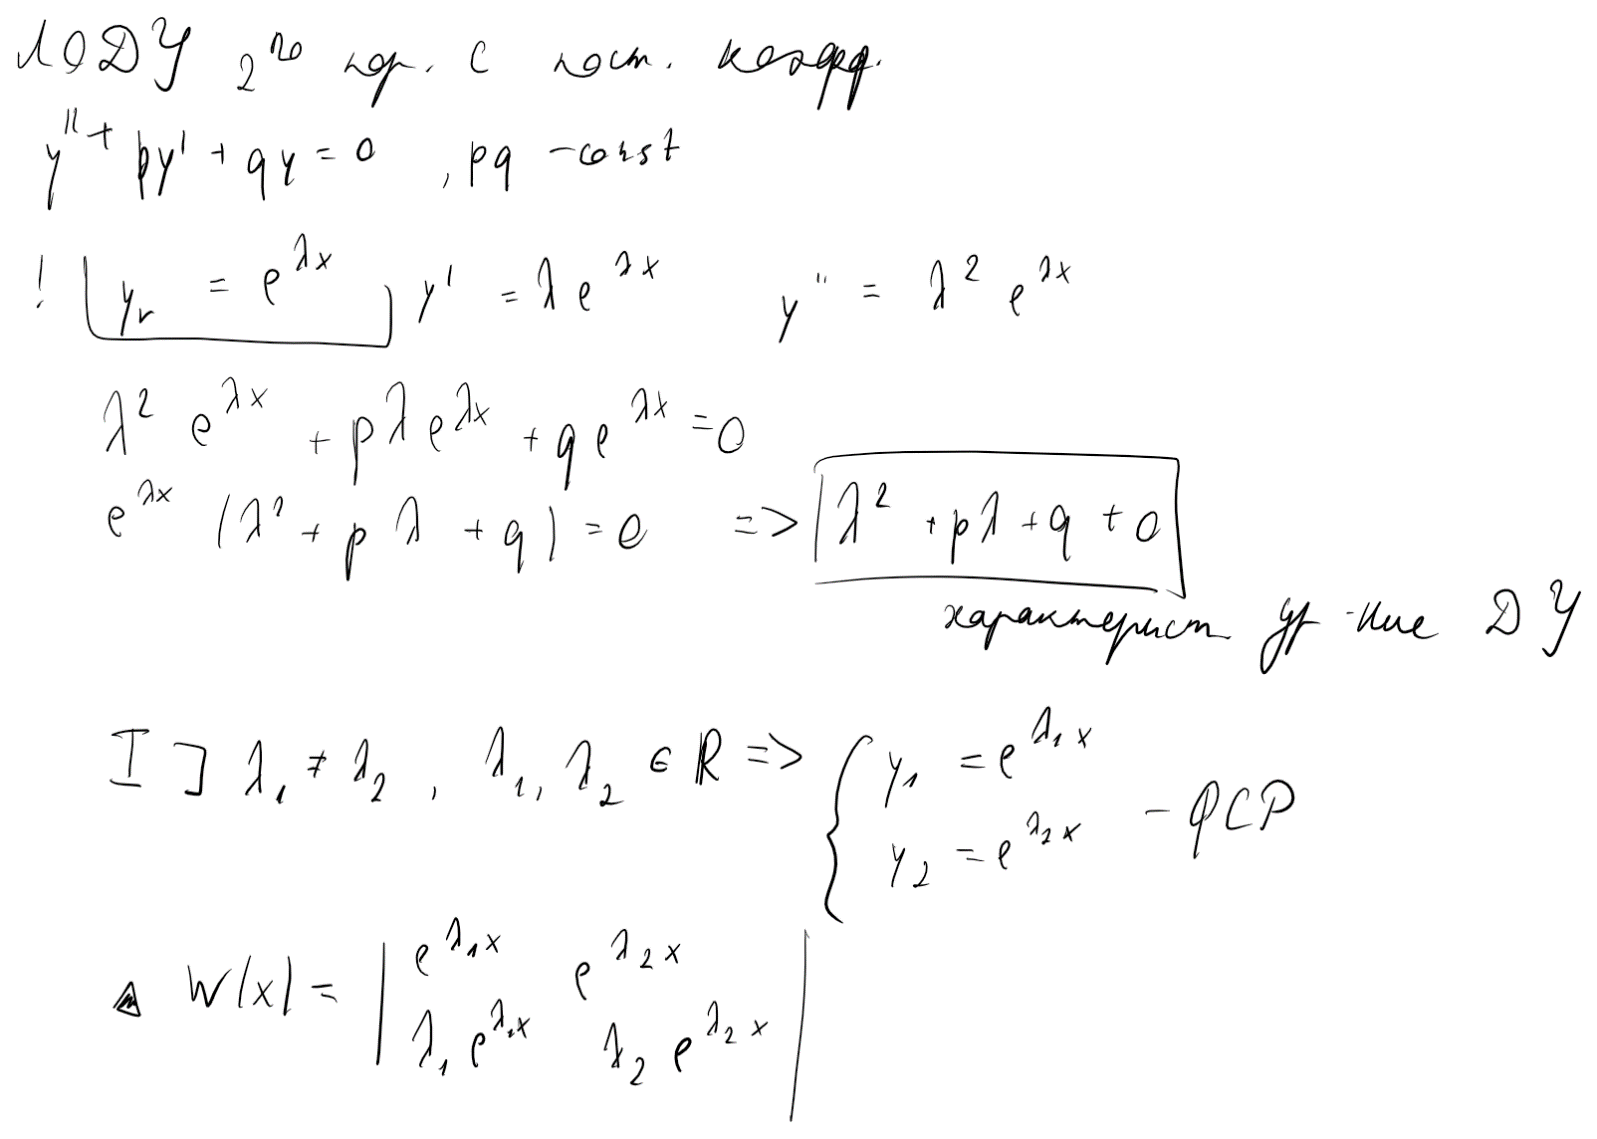 ЛОДУ 2го пор. с пост. коэфф.
y'' + py' + qy = 0 , pq - const
! y_r = e^{λx} y' = λe^{λx} y'' = λ^2 e^{λx}
λ^2 e^{λx} + pλe^{λx} + qe^{λx} = 0
e^{λx} (λ^2 + pλ + q) = 0 => λ^2 + pλ + q + 0
характерист ур-ние ДУ
I ] λ_1 ≠ λ_2 , λ_1, λ_2 ∈ R => { y_1 = e^{λ_1 x}
y_2 = e^{λ_2 x} - ФСР
▲ W(x) = | e^{λ_1 x} e^{λ_2 x} |
| λ_1 e^{λ_1 x} λ_2 e^{λ_2 x} |